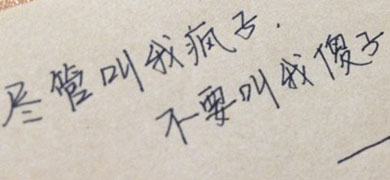 尽管叫我疯子.
不要叫我傻子